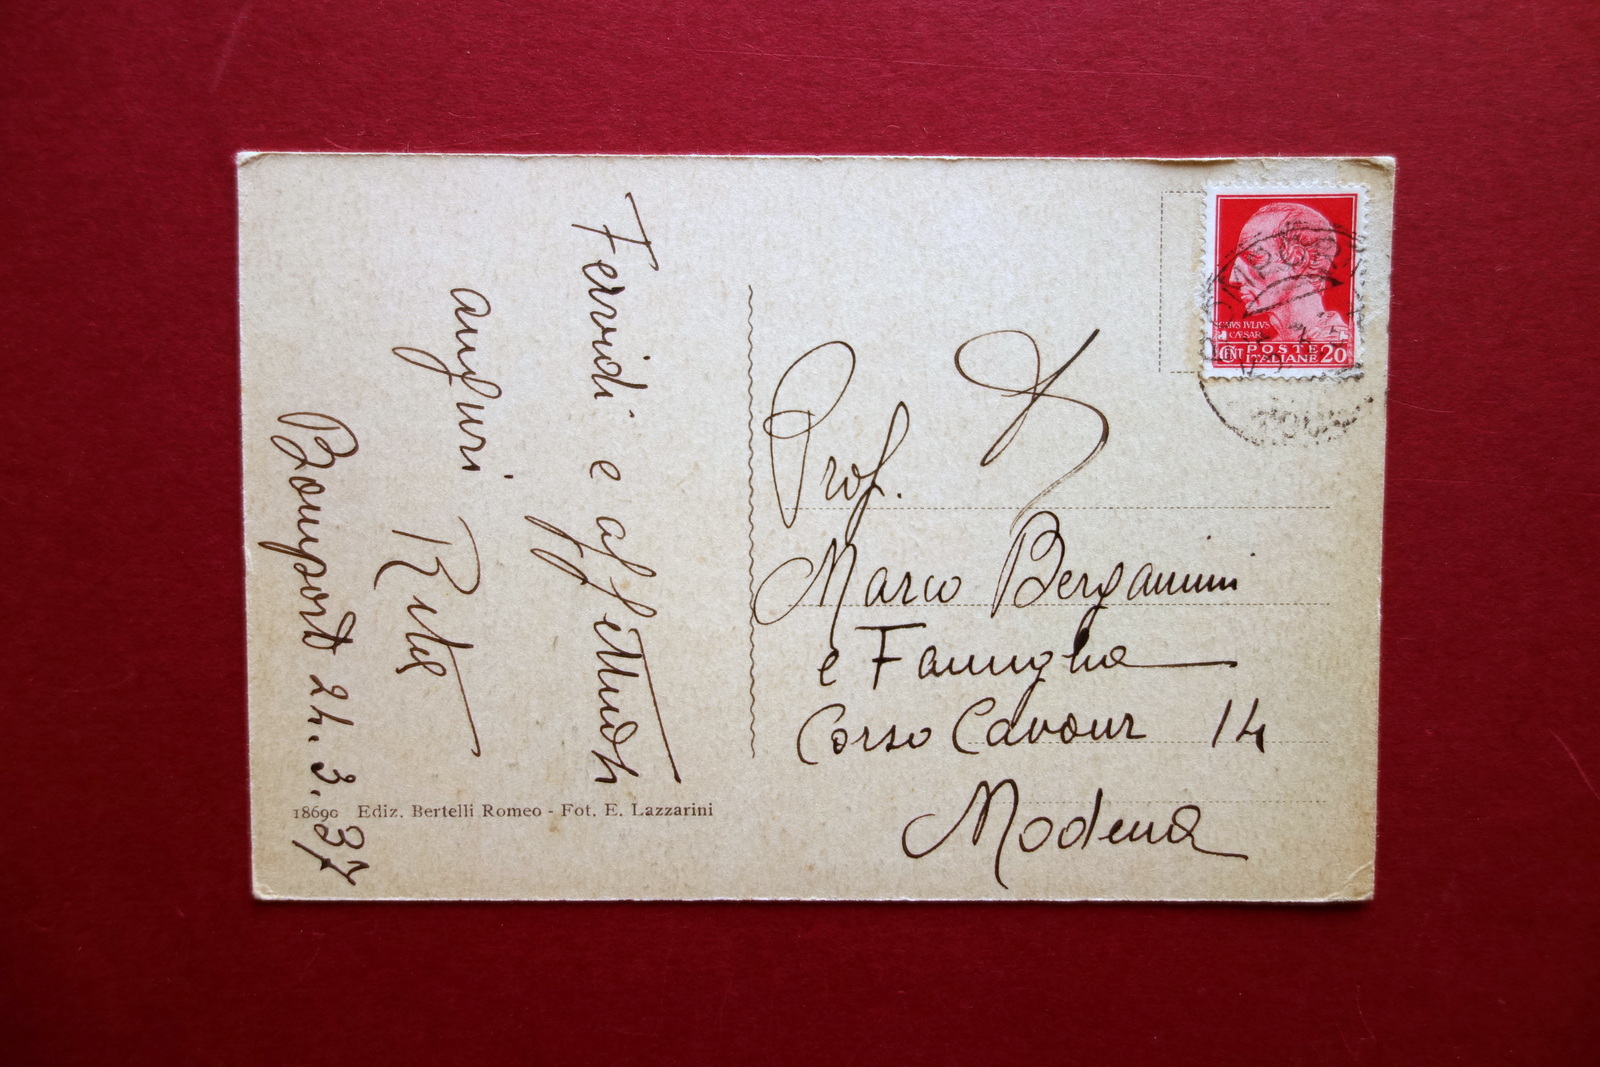 Fervidi e affettuosi
auguri
Rita
Bomporto 24.3.37
18690 Ediz. Bertelli Romeo - Fot. E. Lazzarini
CAIVS IVLIVS
CÆSAR
CENT POSTE
ITALIANE 20
Prof.
Marco Bergamini
e Famiglia
Corso Cavour 14
Modena